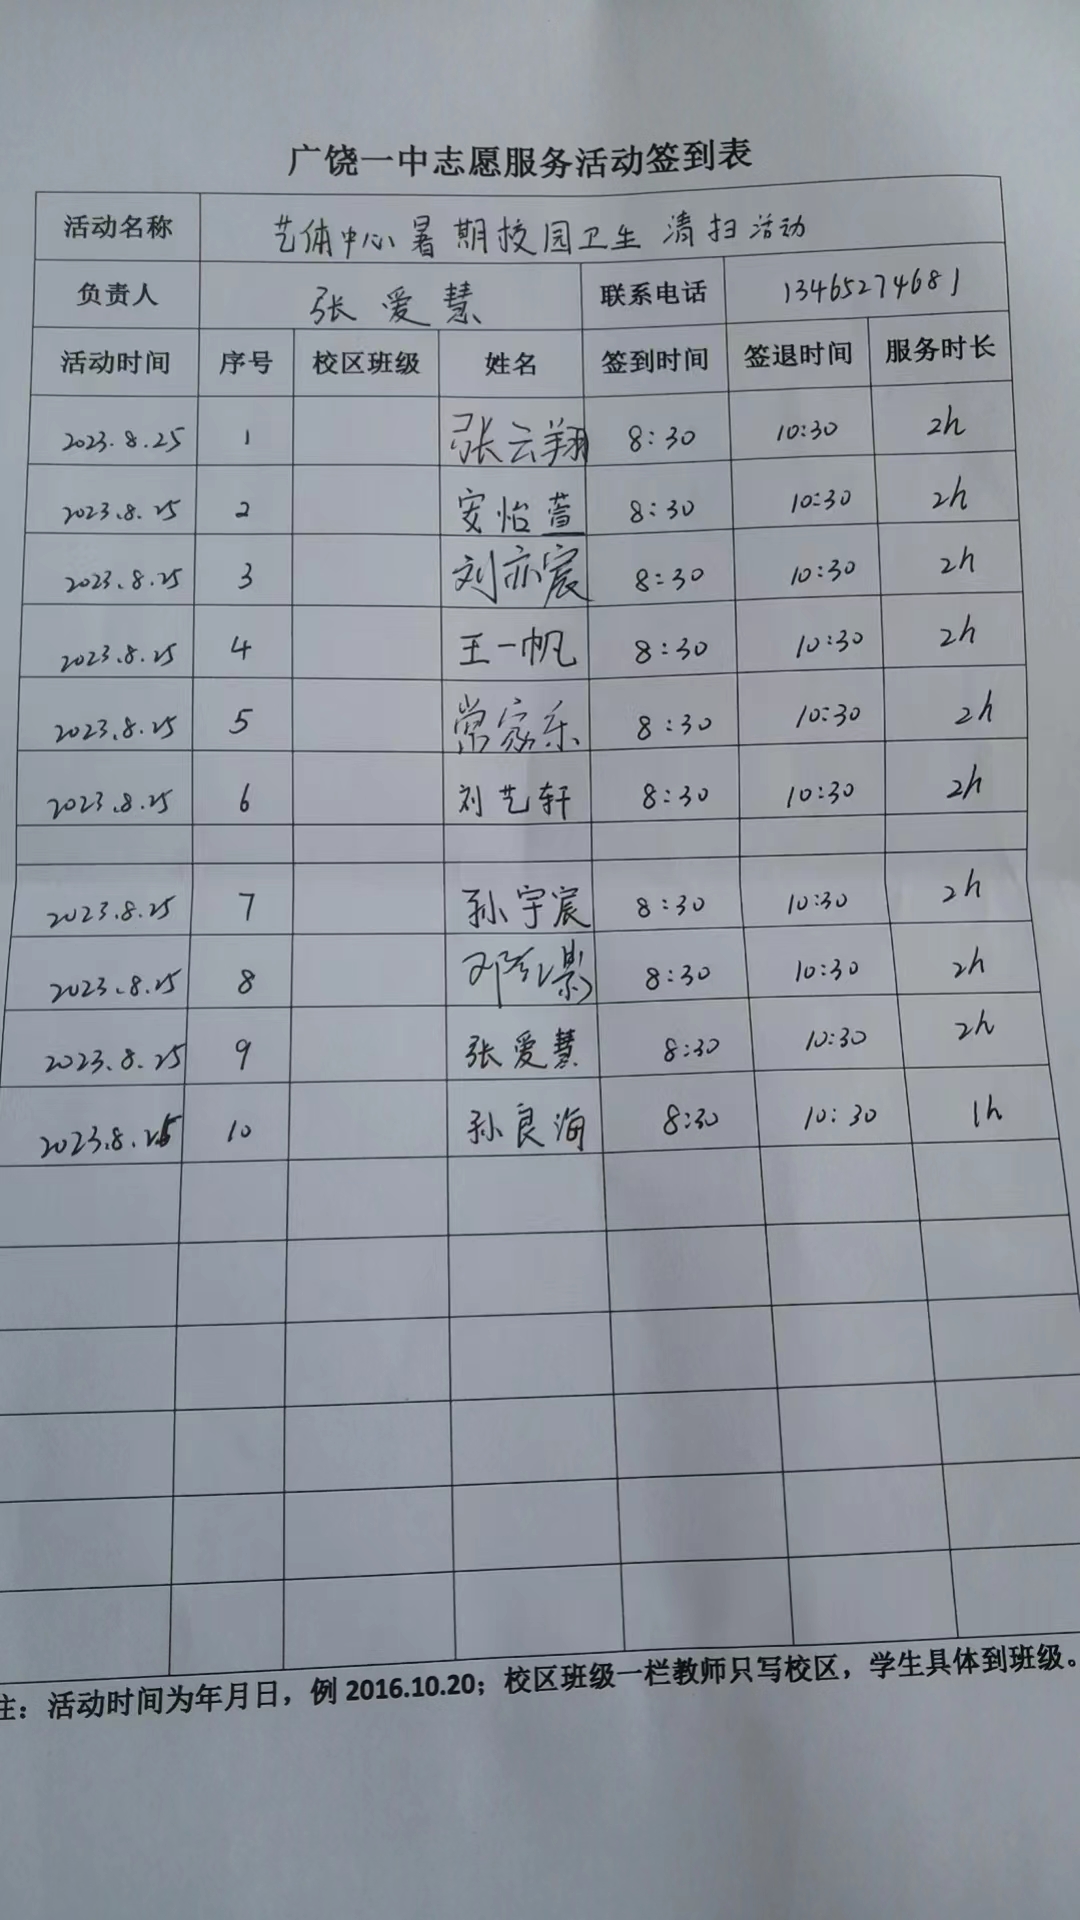 广饶一中志愿服务活动签到表
活动名称 艺体中心暑期校园卫生清扫活动
负责人 张爱慧 联系电话 13465274681
活动时间 序号 校区班级 姓名 签到时间 签退时间 服务时长
2023.8.25 1 张云翔 8:30 10:30 2h
2023.8.25 2 安怡萱 8:30 10:30 2h
2023.8.25 3 刘亦宸 8:30 10:30 2h
2023.8.25 4 王一帆 8:30 10:30 2h
2023.8.25 5 常家乐 8:30 10:30 2h
2023.8.25 6 刘艺轩 8:30 10:30 2h
2023.8.25 7 孙宇宸 8:30 10:30 2h
2023.8.25 8 邓 8:30 10:30 2h
2023.8.25 9 张爱慧 8:30 10:30 2h
2023.8.25 10 孙良海 8:30 10:30 1h
注：活动时间为年月日，例 2016.10.20；校区班级一栏教师只写校区，学生具体到班级。